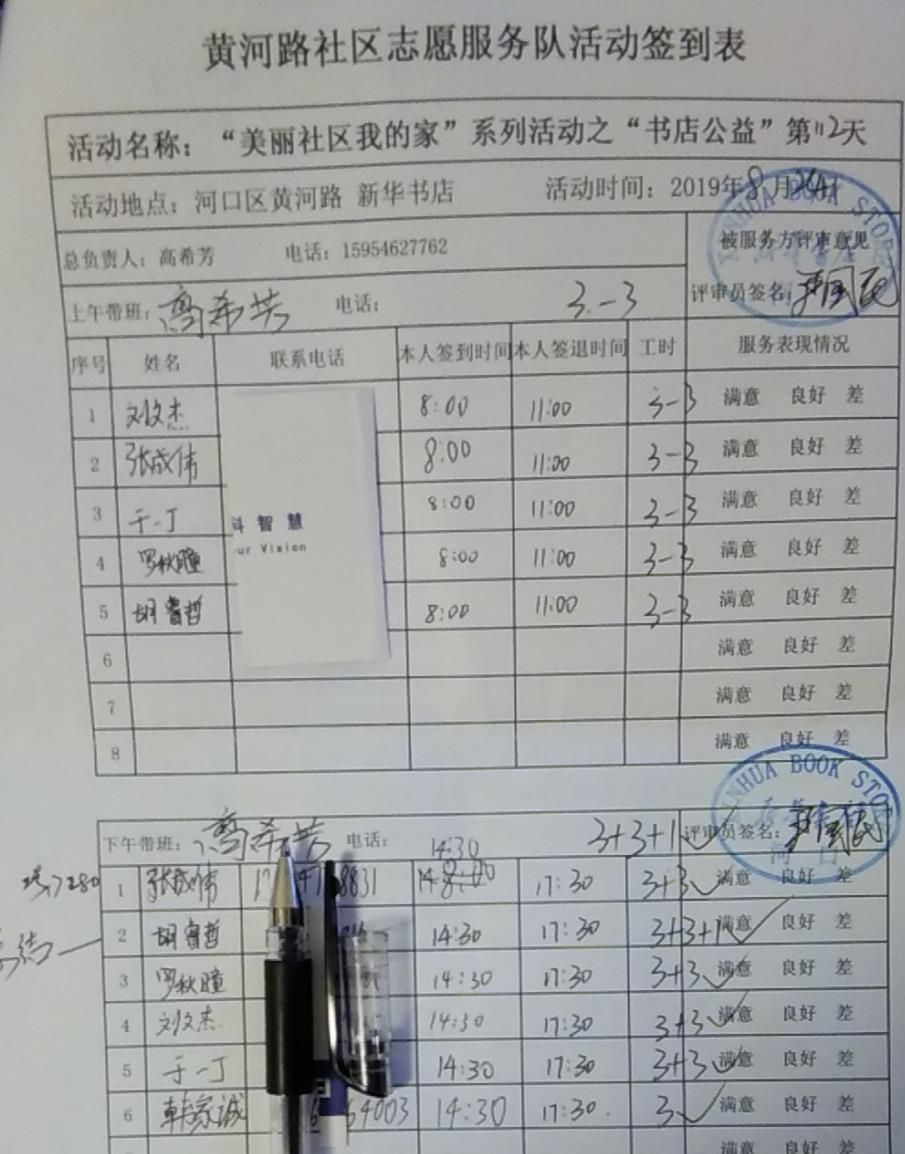 黄河路社区志愿服务队活动签到表
活动名称：“美丽社区我的家”系列活动之“书店公益”第12天
活动地点：河口区黄河路 新华书店 活动时间：2019年8月 日
总负责人：高希芳 电话：15954627762 被服务方评审意见
上午带班：高希芳 电话： 3-3 评审员签名：
序号 姓名 联系电话 本人签到时间 本人签退时间 工时 服务表现情况
1 刘文杰 8:00 11:00 3-3 满意 良好 差
2 张成伟 8:00 11:00 3-3 满意 良好 差
3 于一丁 8:00 11:00 3-3 满意 良好 差
4 罗秋瞳 8:00 11:00 3-3 满意 良好 差
5 胡睿哲 8:00 11:00 3-3 满意 良好 差
6 满意 良好 差
7 满意 良好 差
8 满意 良好 差
科智慧
ur Vision
XINHUA BOOK STORE
XINHUA BOOK STO
下午带班：高希芳 电话： 3+3+1 评审员签名：
14:30
1 张成伟 8831 17:30 3+3 满意 良好 差
2 胡睿哲 14:30 17:30 3+3+1 满意 良好 差
3 罗秋瞳 14:30 17:30 3+3 满意 良好 差
4 刘文杰 14:30 17:30 3+3 满意 良好 差
5 于一丁 14:30 17:30 3+3 满意 良好 差
6 韩家诚 64003 14:30 17:30 3 满意 良好 差
满意 良好 差